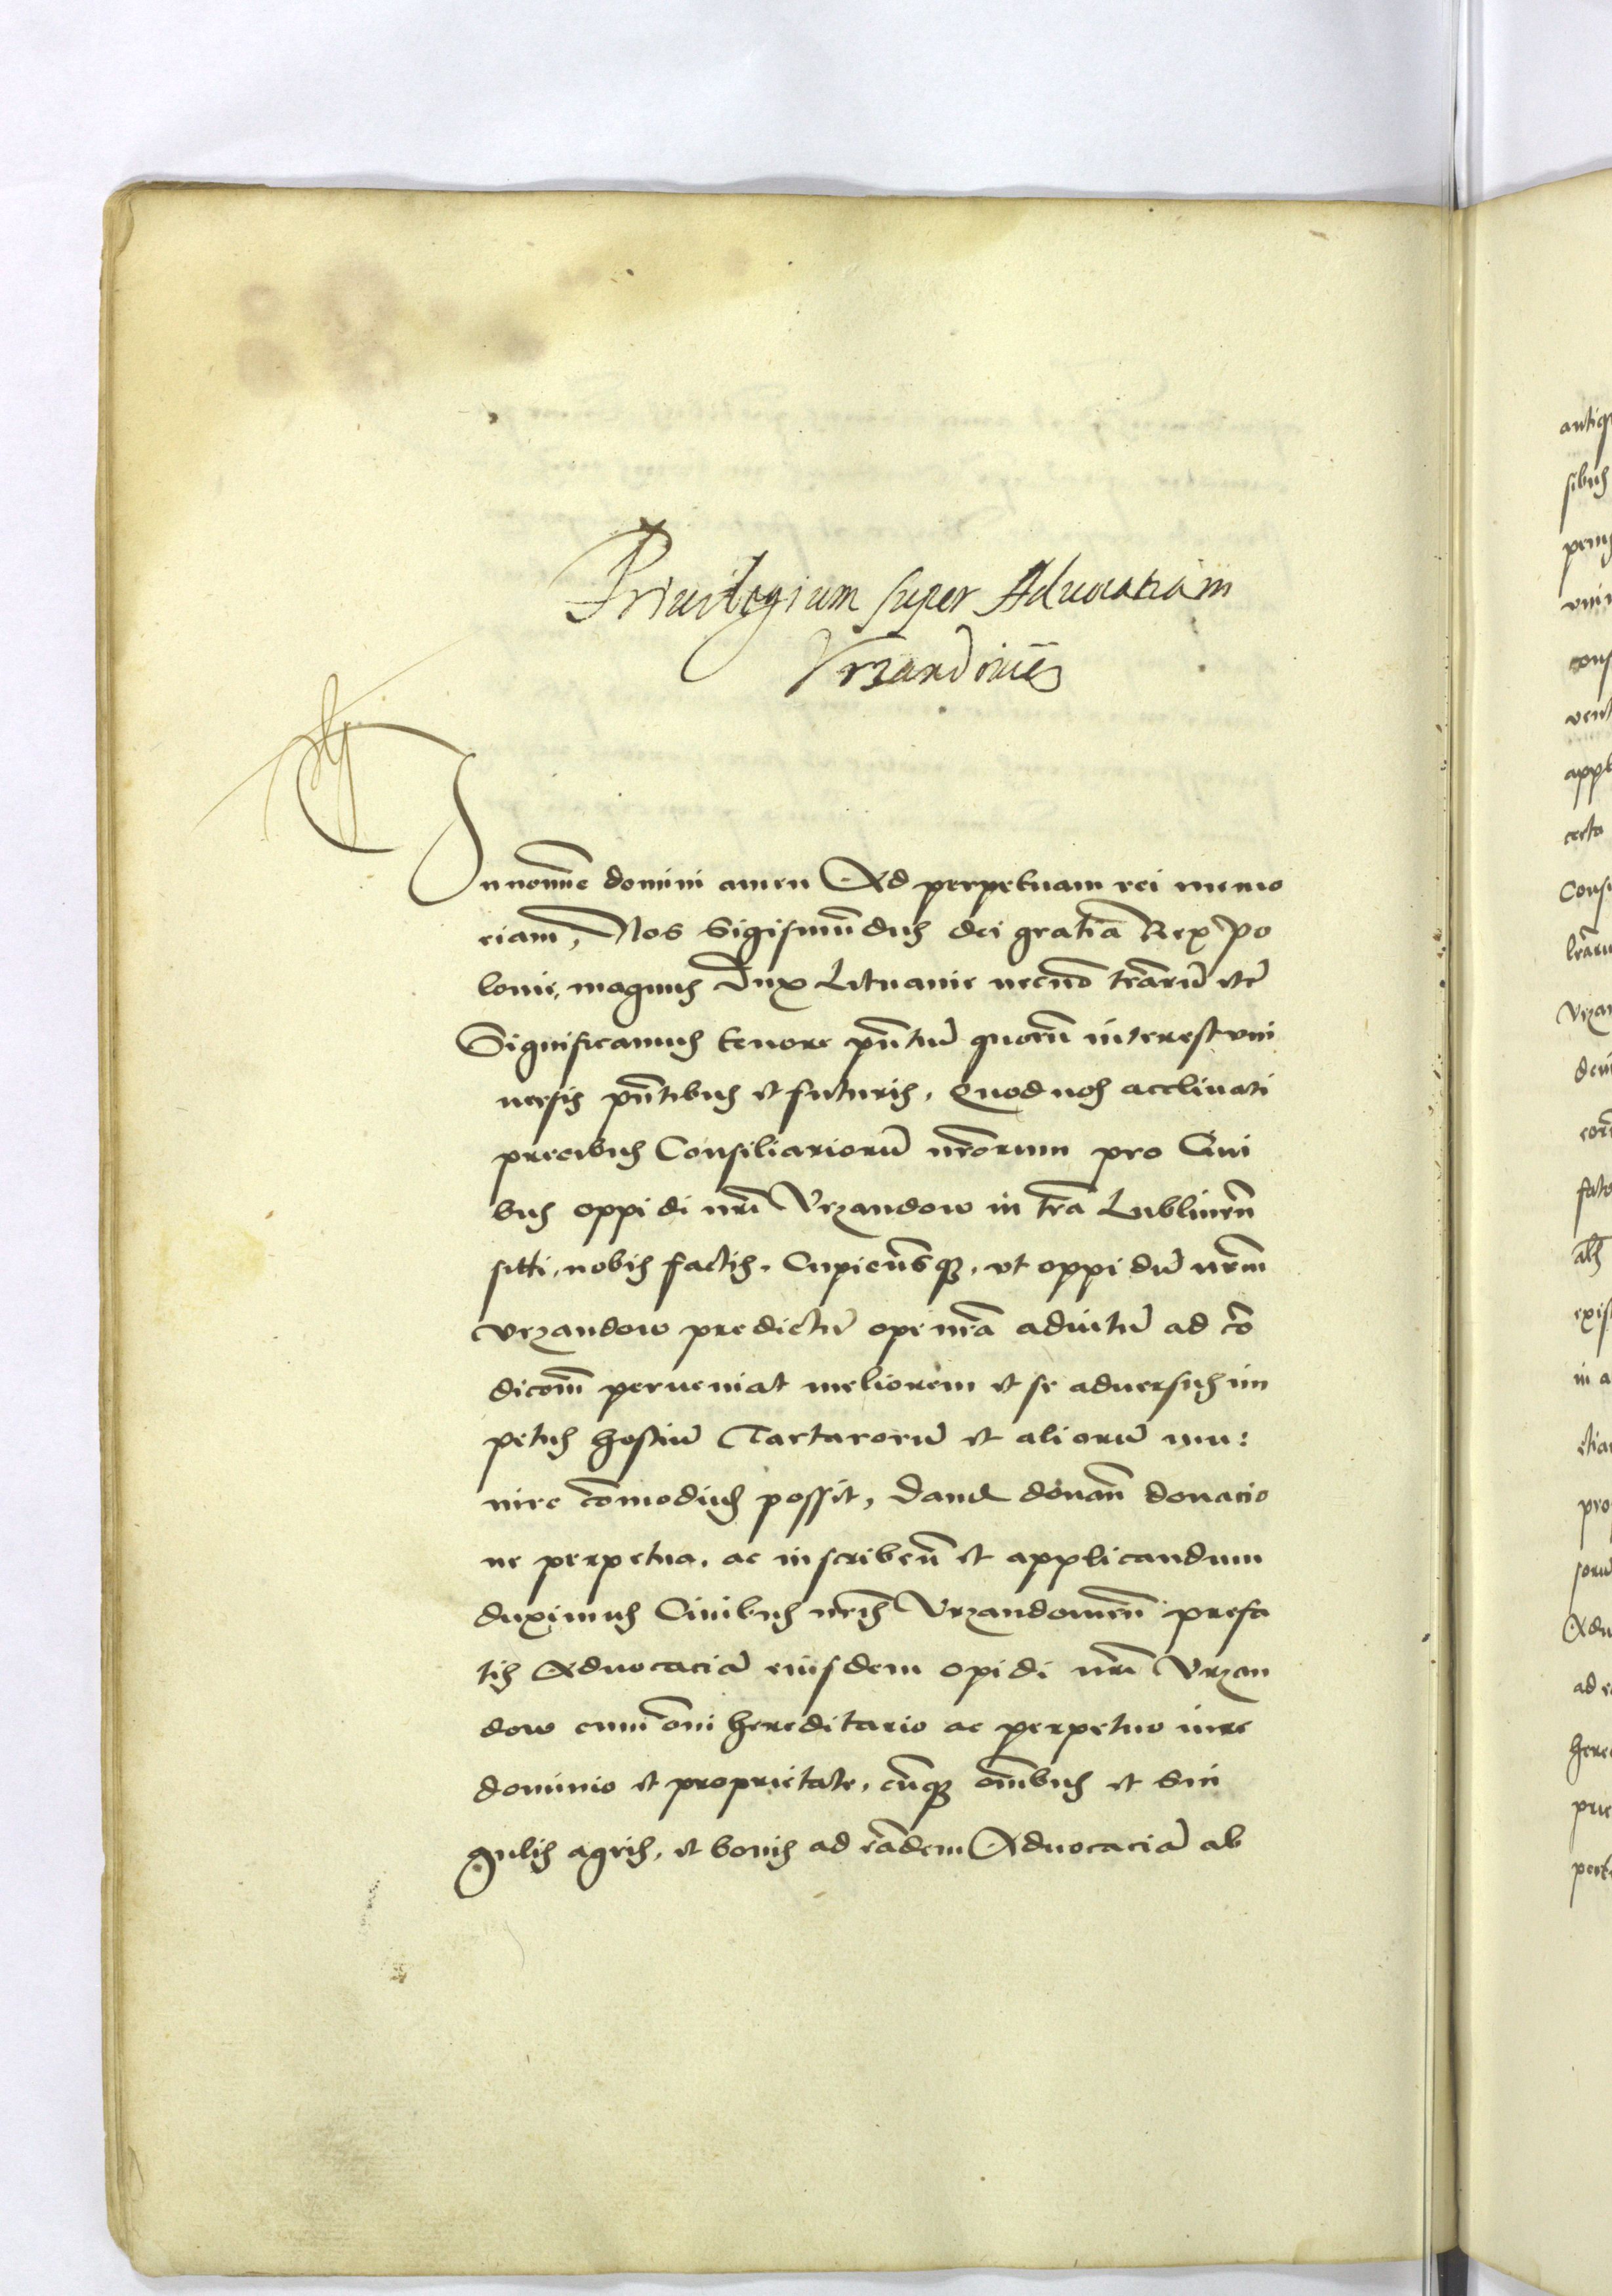 Priuilegium super Aduocatiam
Vrzandouien̄
In nomīe domini amen Ad perpetuam rei memo
riam, Nos Sigismūdus dei gratia Rex Po
lonie, magnus Dux Lituanie necnō terrarū etc̄
Significamus tenore pn̄tiū quorū interest vni
uersis pn̄tibus et futuris, Quod nos acclinati
precibus Consiliariorū nr̄orum pro Ciui
bus oppidi nr̄i Vrzandow in tr̄a Lublinen̄
sitti, nobis factis, Cupientesq3, vt oppidū nr̄m
Vrzandow predictū ope nr̄a adiutū ad cō
dicōm perueniat meliorem et se aduersus im
petus hostiū Tartarorū et aliorū mu:
nire cōmodius possit, Dand donan̄ donacio
ne perpetua, ac inscriben̄ et applicandum
duximus Ciuibus nr̄is Vrzandouien̄ prefa
tis Aduocaciā eiusdem opidi nr̄i Vrzan
dow cum om̄i hereditario ac perpetuo iure
dominio et proprietate, cūq3 om̄ibus et sin
gulis agris, et bonis ad eādem Aduocaciā ab
antiq
sibus
cons
vent
appl
certa
Consu
Vrzan
fato
exist
in a
etiam
pro
soru
Adu
ad e
here